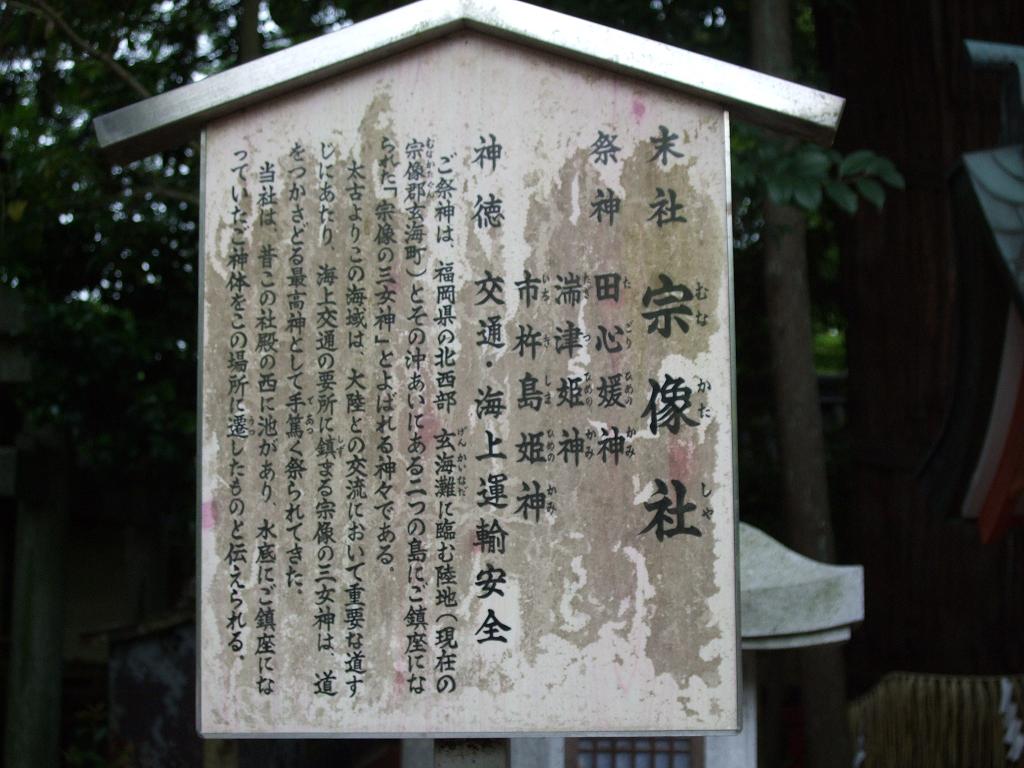 末社 宗像社
祭神 田心媛神
湍津姫神
市杵島姫神
神徳 交通・海上運輸安全
ご祭神は、福岡県の北西部 玄海灘に臨む陸地(現在の
宗像郡玄海町)とその沖あいにある二つの島にご鎮座にな
られた「宗像の三女神」とよばれる神々である。
太古よりこの海域は、大陸との交流において重要な道す
じにあたり、海上交通の要所に鎮まる宗像の三女神は、道
をつかさどる最高神として手篤く祭られてきた。
当社は、昔この社殿の西に池があり、水底にご鎮座にな
っていたご神体をこの場所に遷したものと伝えられる。